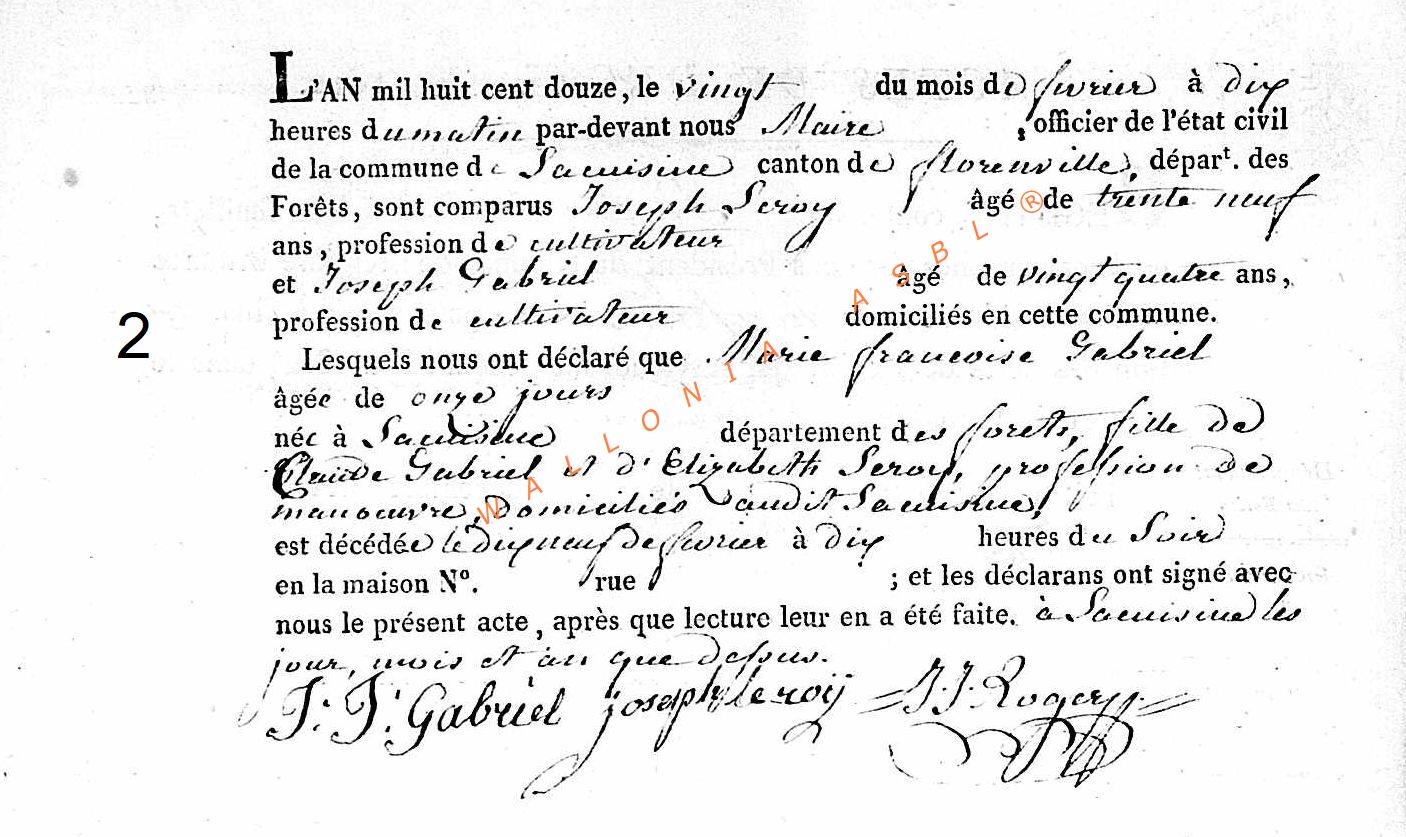 L'AN mil huit cent douze, le vingt du mois de fevrier à dix
heures du matin par-devant nous Maire, officier de l'état civil
de la commune de Lacuisine canton de florenville, départ. des
Forêts, sont comparus Joseph Leroy âgé de trente neuf
ans, profession de cultivateur
et Joseph Gabriel âgé de vingt quatre ans,
profession de cultivateur domiciliés en cette commune.
2
Lesquels nous ont déclaré que Marie francoise Gabriel
âgée de onze jours
née à Lacuisine département des forets, fille de
Claude Gabriel et d'Elizabeth Leroy, profession de
manoeuvre, domiciliés audit Lacuisine,
est décédée le dix neuf de fevrier à dix heures du Soir
en la maison Nº. rue ; et les déclarans ont signé avec
nous le présent acte, après que lecture leur en a été faite. à Lacuisine les
jour, mois et an que dessus.
J: J: Gabriel joseph leroij J. J. Rogery
WALLONIA ASBL ®